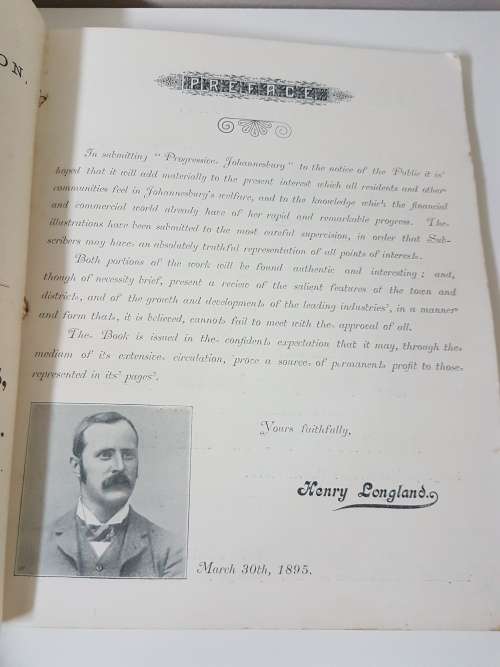 ON.
PREFACE.
In submitting "Progressive Johannesburg" to the notice of the Public it is
hoped that it will add materially to the present interest which all residents and other
communities feel in Johannesburg's welfare, and to the knowledge which the financial
and commercial world already have of her rapid and remarkable progress. The
illustrations have been submitted to the most careful supervision, in order that Sub-
scribers may have an absolutely truthful representation of all points of interest.
Both portions of the work will be found authentic and interesting; and,
though of necessity brief, present a review of the salient features of the town and
districts, and of the growth and development of the leading industries, in a manner
and form that, it is believed, cannot fail to meet with the approval of all.
The Book is issued in the confident expectation that it may, through the
medium of its extensive circulation, prove a source of permanent profit to those
represented in its pages.
Yours faithfully,
Henry Longland.
March 30th, 1895.